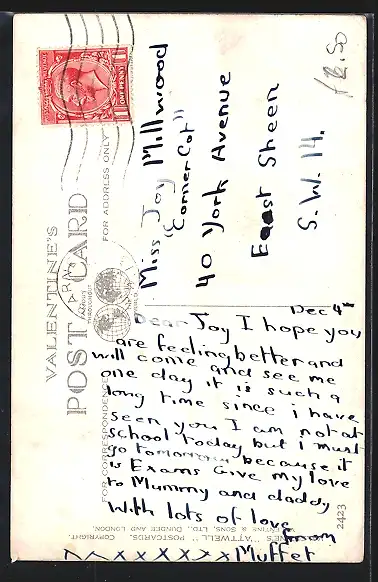 VALENTINE'S
POST CARD
FOR ADDRESS ONLY
FOR CORRESPONDENCE
ONE PENNY
Miss Joy Millwood
"Corner Cot"
40 York Avenue
East Sheen
S.W. 14.
Dec 4th
Dear Joy I hope you
are feeling better and
will come and see me
one day it is such a
long time since i have
seen you I am not at
school today but I must
go tomorrow because it
is Exams Give my love
to Mummy and daddy
With lots of love
from
Muffet
xxxxxxxx
"ATTWELL" POSTCARDS. COPYRIGHT.
VALENTINE & SONS, LTD., DUNDEE AND LONDON.
2423